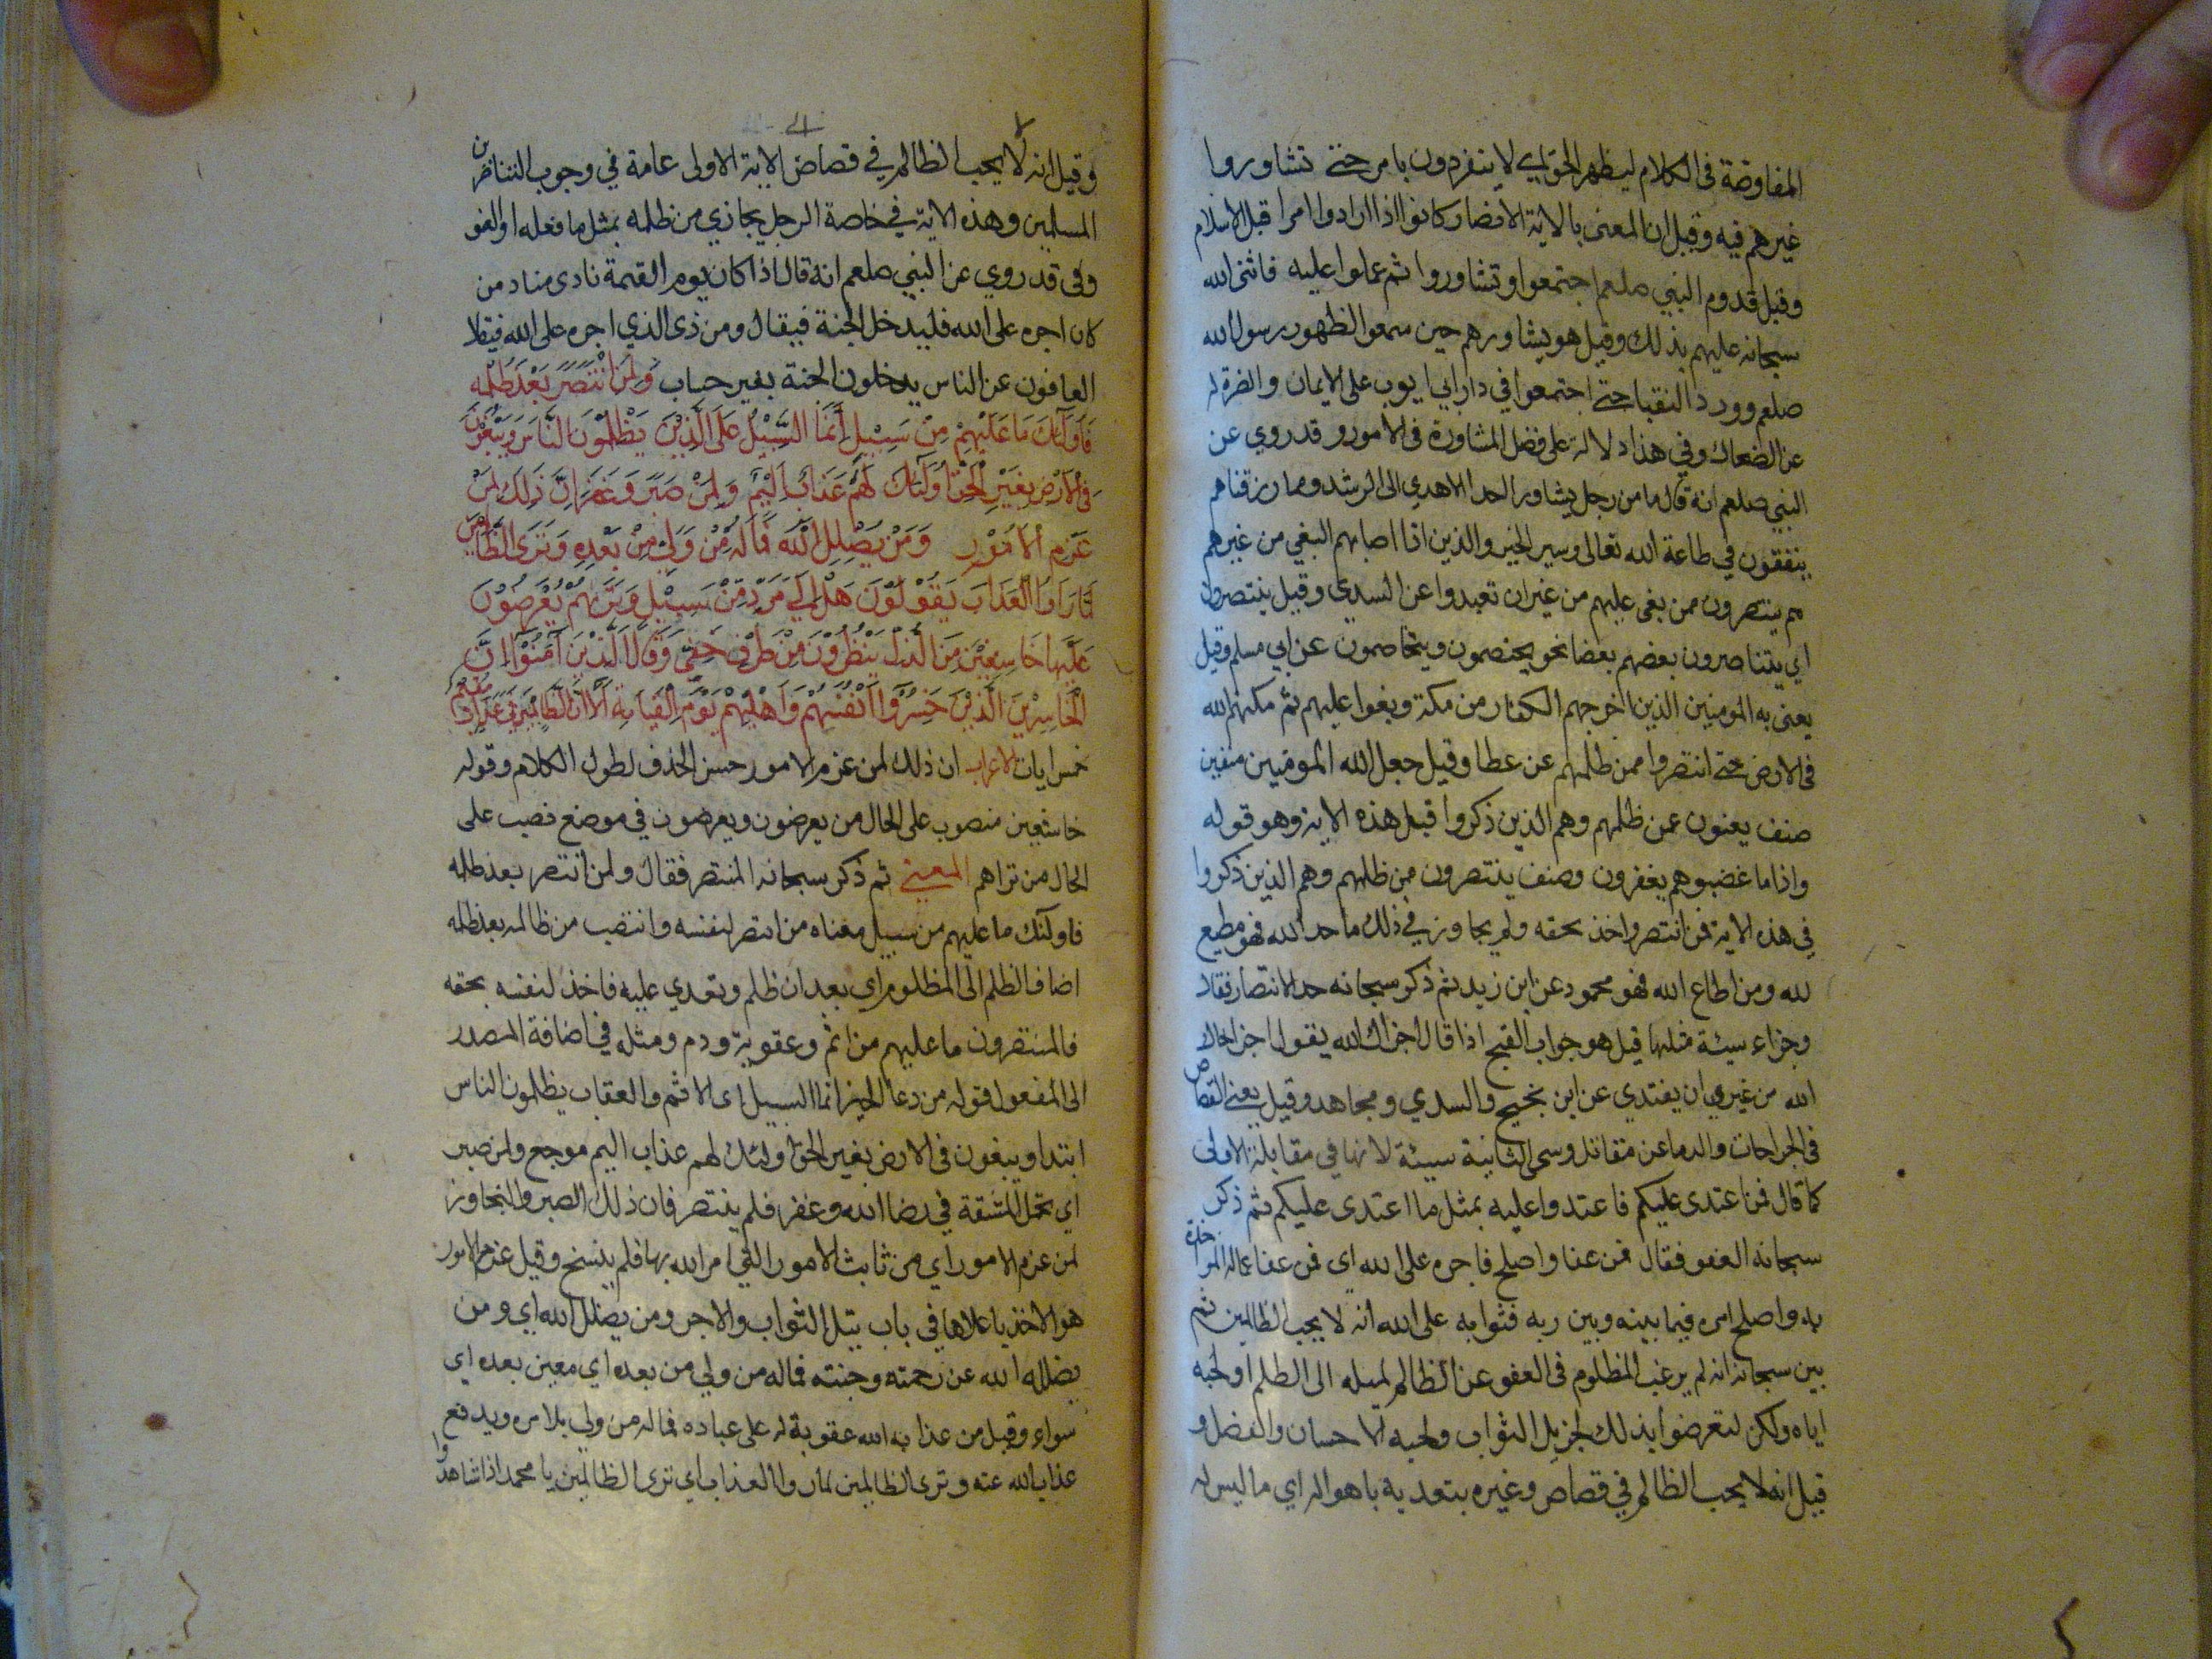 المفاوضة فى الكلام ليظهر الحق اي لا يتفردون بامر حتى تشاوروا
غيرهم فيه وقيل ان المعنى بالاية الانصار كانوا اذا ارادوا امرا قبل الاسلام
وقبل قدوم النبي صلعم اجتمعوا وتشاوروا ثم عملوا عليه فاثنى الله
سبحانه عليهم بذلك وقيل هو يشاورهم حين سمعوا الظهور رسول الله
صلعم وورد النقبا حتى اجتمعوا في دار ابي ايوب على الايمان والنصرة له
عن الضحاك وفي هذا دلالة على فضل المشاورة في الامور وقد روي عن
النبي صلعم انه قال ما من رجل يشاور احدا الا هدي الى الرشد ومما رزقناهم
ينفقون في طاعة الله تعالى وسبر الخير والذين اذا اصابهم البغي من غيرهم
هم ينتصرون ممن بغى عليهم من غير ان تعبدوا عن السدي وقيل ينتصرون
اي يتناصرون بعضهم بعضا نحو يختصمون ويتخاصمون عن ابي مسلم وقيل
يعنى به المومنين الذين اخرجهم الكفار من مكة وبغوا عليهم ثم مكنهم الله
فى الارض حتى انتصروا ممن ظلمهم عن عطا وقيل جعل الله المومنين صنفين
صنف يعفون عمن ظلمهم وهم الذين ذكروا قبل هذه الاية وهو قوله
واذا ما غضبوا هم يغفرون وصنف ينتصرون ممن ظلمهم وهم الذين ذكروا
في هذه الاية فمن انتصر واخذ بحقه ولم يجاوز في ذلك ما حد الله فهو مطيع
لله ومن اطاع الله فهو محمود عن ابن زيد ثم ذكر سبحانه حد الانتصار فقال
وجزاء سيئة مثلها قيل هو جواب القبيح اذا قال اخزاك الله يقول اخزاك
الله من غير ان يعتدي عن ابن نجيح والسدي ومجاهد وقيل يعنى القصاص
فى الجراحات والدما عن مقاتل وسمى الثانية سيئة لانها في مقابلة الاولى
كما قال فمن اعتدى عليكم فاعتدوا عليه بمثل ما اعتدى عليكم ثم ذكر
سبحانه العفو فقال فمن عفا واصلح فاجره على الله اى فمن عفا عما له المواخذة
به واصلح امره فيما بينه وبين ربه فثوابه على الله انه لا يحب الظالمين ثم
بين سبحانه انه لم يرغب المظلوم فى العفو عن الظالم لميله الى الظلم او لحبه
اياه ولكن لتعرضوا بذلك لجزيل الثواب ولحبه الاحسان والفضل و
قيل انه لا يحب الظالم في قصاص وغيره بتعديه باهواله اي ما ليس له
وقيل انه لا يحب الظالم في قصاص الاية الاولى عامة في وجوب التناصر بن
المسلمين وهذه الاية في خاصة الرجل يجازي من ظلمه بمثل ما فعله او العفو
وفى قد روي عن النبي صلعم انه قال اذا كان يوم القيمة نادى مناد من
كان اجره على الله فليدخل الجنة فيقال ومن ذى الذي اجره على الله فيقال
العافون عن الناس يدخلون الجنة بغير حساب وَلَمَنْ انْتَصَرَ بَعْدَ ظُلْمِهِ
فَاُولَئِكَ مَا عَلَيْهِمْ مِنْ سَبِيْلٍ اِنَّمَا السَّبِيْلُ عَلَى الَّذِيْنَ يَظْلِمُوْنَ النَّاسَ وَيَبْغُوْنَ
فِى الْاَرْضِ بِغَيْرِ الْحَقِّ اُولَئِكَ لَهُمْ عَذَابٌ اَلِيْمٌ وَلَمَنْ صَبَرَ وَغَفَرَ اِنَّ ذَلِكَ لَمِنْ
عَزْمِ الْاُمُوْرِ وَمَنْ يُضْلِلِ اللهُ فَمَا لَهُ مِنْ وَلِيٍّ مِنْ بَعْدِهِ وَتَرَى الظَّالِمِيْنَ
لَمَّا رَاَوُا الْعَذَابَ يَقُوْلُوْنَ هَلْ اِلَى مَرَدٍّ مِنْ سَبِيْلٍ وَتَرَيهُمْ يُعْرَضُوْنَ
عَلَيْهَا خَاشِعِيْنَ مِنَ الذُّلِّ يَنْظُرُوْنَ مِنْ طَرْفٍ خَفِيٍّ وَقَالَ الَّذِيْنَ آمَنُوْا اِنَّ
الْخَاسِرِيْنَ الَّذِيْنَ خَسِرُوْا اَنْفُسَهُمْ وَاَهْلِيْهِمْ يَوْمَ الْقِيَامَةِ اَلَا اِنَّ الظَّالِمِيْنَ فِي عَذَابٍ مُقِيْمٍ
خمس ايات الاعراب ان ذلك لمن عزم الامور حسن الحذف لطول الكلام وقوله
خاشعين منصوب على الحال من يعرضون ويعرضون في موضع نصب على
الحال من تراهم المعنى ثم ذكر سبحانه المنتصر فقال ولمن انتصر بعد ظلمه
فاولئك ما عليهم من سبيل معناه من انتصر لنفسه وانتصب من ظالمه بعد ظلمه
اضاف الظلم الى المظلوم اي بعد ان ظلم وتعدي عليه فاخذ لنفسه بحقه
فالمنتصرون ما عليهم من اثم وعقوبة وذم ومثله في اضافة المصدر
الى المفعول قوله من دعا الخير انما السبيل اى الاثم والعقاب يظلمون الناس
ابتدا ويبغون فى الارض بغير الحق اولئك لهم عذاب اليم موجع ولمن صبر
اي تحمل المشقة في رضا الله وغفر فلم ينتصر فان ذلك الصبر والتجاوز
لمن عزم الامور اي من ثابت الامور التي امر الله بها فلم ينسخ وقيل عزم الامور
هو الاخذ باعلاها في باب نيل الثواب والاجر ومن يضلل الله اي ومن
يضلله الله عن رحمته وجنته فما له من ولي من بعده اي معين بعده اي
سواه وقيل من عذابه الله عقوبة له على عباده فما له من ولي يلا مره ويدفع
عذاب الله عنه وترى الظالمين لما راوا العذاب اي ترى الظالمين يا محمد اذا شاهدوا